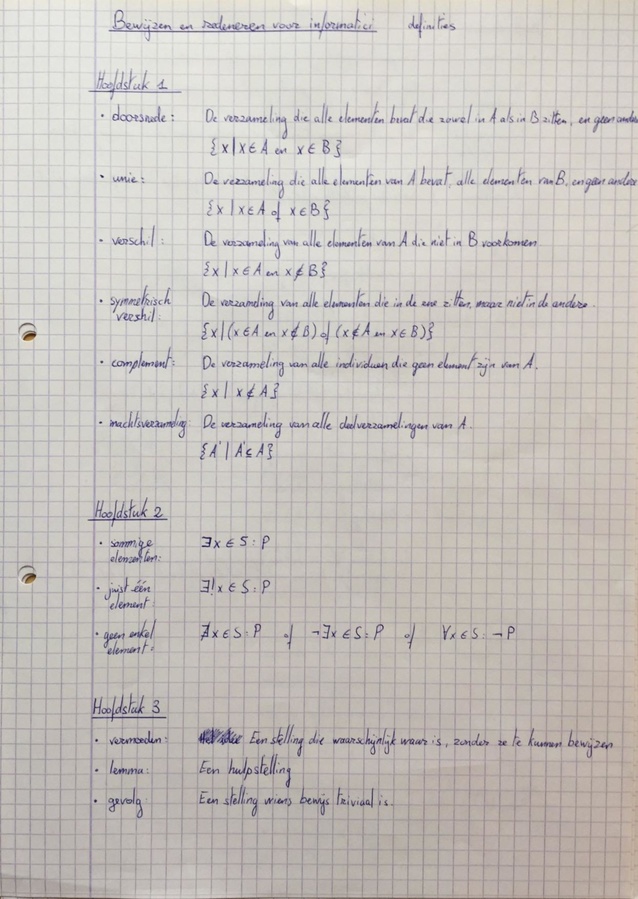 Bewijzen en redeneren voor informatici definities
Hoofdstuk 1
• doorsnede: De verzameling die alle elementen bevat die zowel in A als in B zitten, en geen andere
{x | x ∈ A en x ∈ B}
• unie: De verzameling die alle elementen van A bevat, alle elementen van B, en geen andere
{x | x ∈ A of x ∈ B}
• verschil: De verzameling van alle elementen van A die niet in B voorkomen.
{x | x ∈ A en x ∉ B}
• symmetrisch De verzameling van alle elementen die in de ene zitten, maar niet in de andere.
verschil: {x | (x ∈ A en x ∉ B) of (x ∉ A en x ∈ B)}
• complement: De verzameling van alle individuen die geen element zijn van A.
{x | x ∉ A}
• machtsverzameling: De verzameling van alle deelverzamelingen van A.
{A' | A' ⊆ A}
Hoofdstuk 2
• sommige ∃x ∈ S : P
elementen:
• juist één ∃!x ∈ S : P
element:
• geen enkel ∄x ∈ S : P of ¬∃x ∈ S : P of ∀x ∈ S : ¬P
element:
Hoofdstuk 3
• vermoeden: Een stelling die waarschijnlijk waar is, zonder ze te kunnen bewijzen
• lemma: Een hulpstelling
• gevolg: Een stelling wiens bewijs triviaal is.